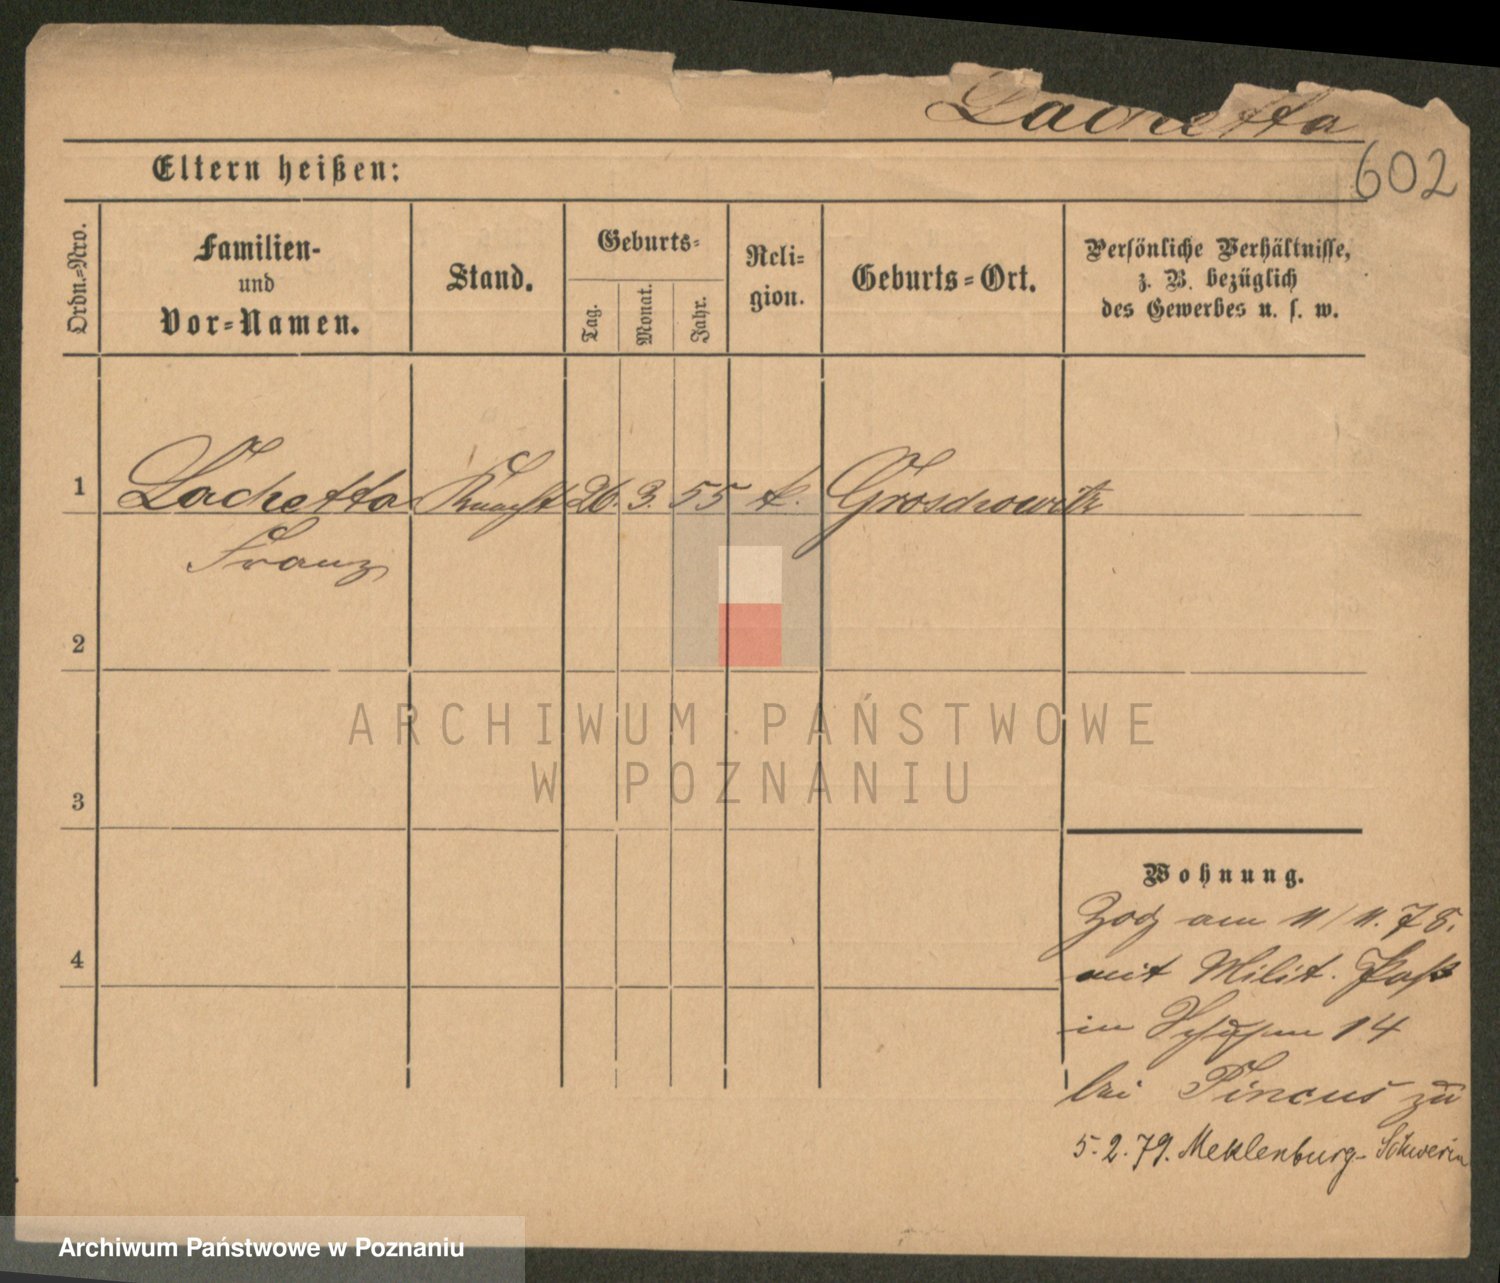 Lachetta
602
Eltern heißen:
Ordn.=Nro.
Familien-
und
Vor=Namen.
Stand.
Geburts=
Tag.
Monat.
Jahr.
Reli=
gion.
Geburts=Ort.
Persönliche Verhältnisse,
z. B. bezüglich
des Gewerbes u. s. w.
1 Lachetta Knecht 26. 3. 55 k. Groschowitz
Franz
2
3
4
Wohnung.
Zog am 11/11. 78.
mit Milit. Paß
in 14
bei Pincus zu
5.2.79. Meklenburg-Schwerin
ARCHIWUM PAŃSTWOWE
W POZNANIU
Archiwum Państwowe w Poznaniu